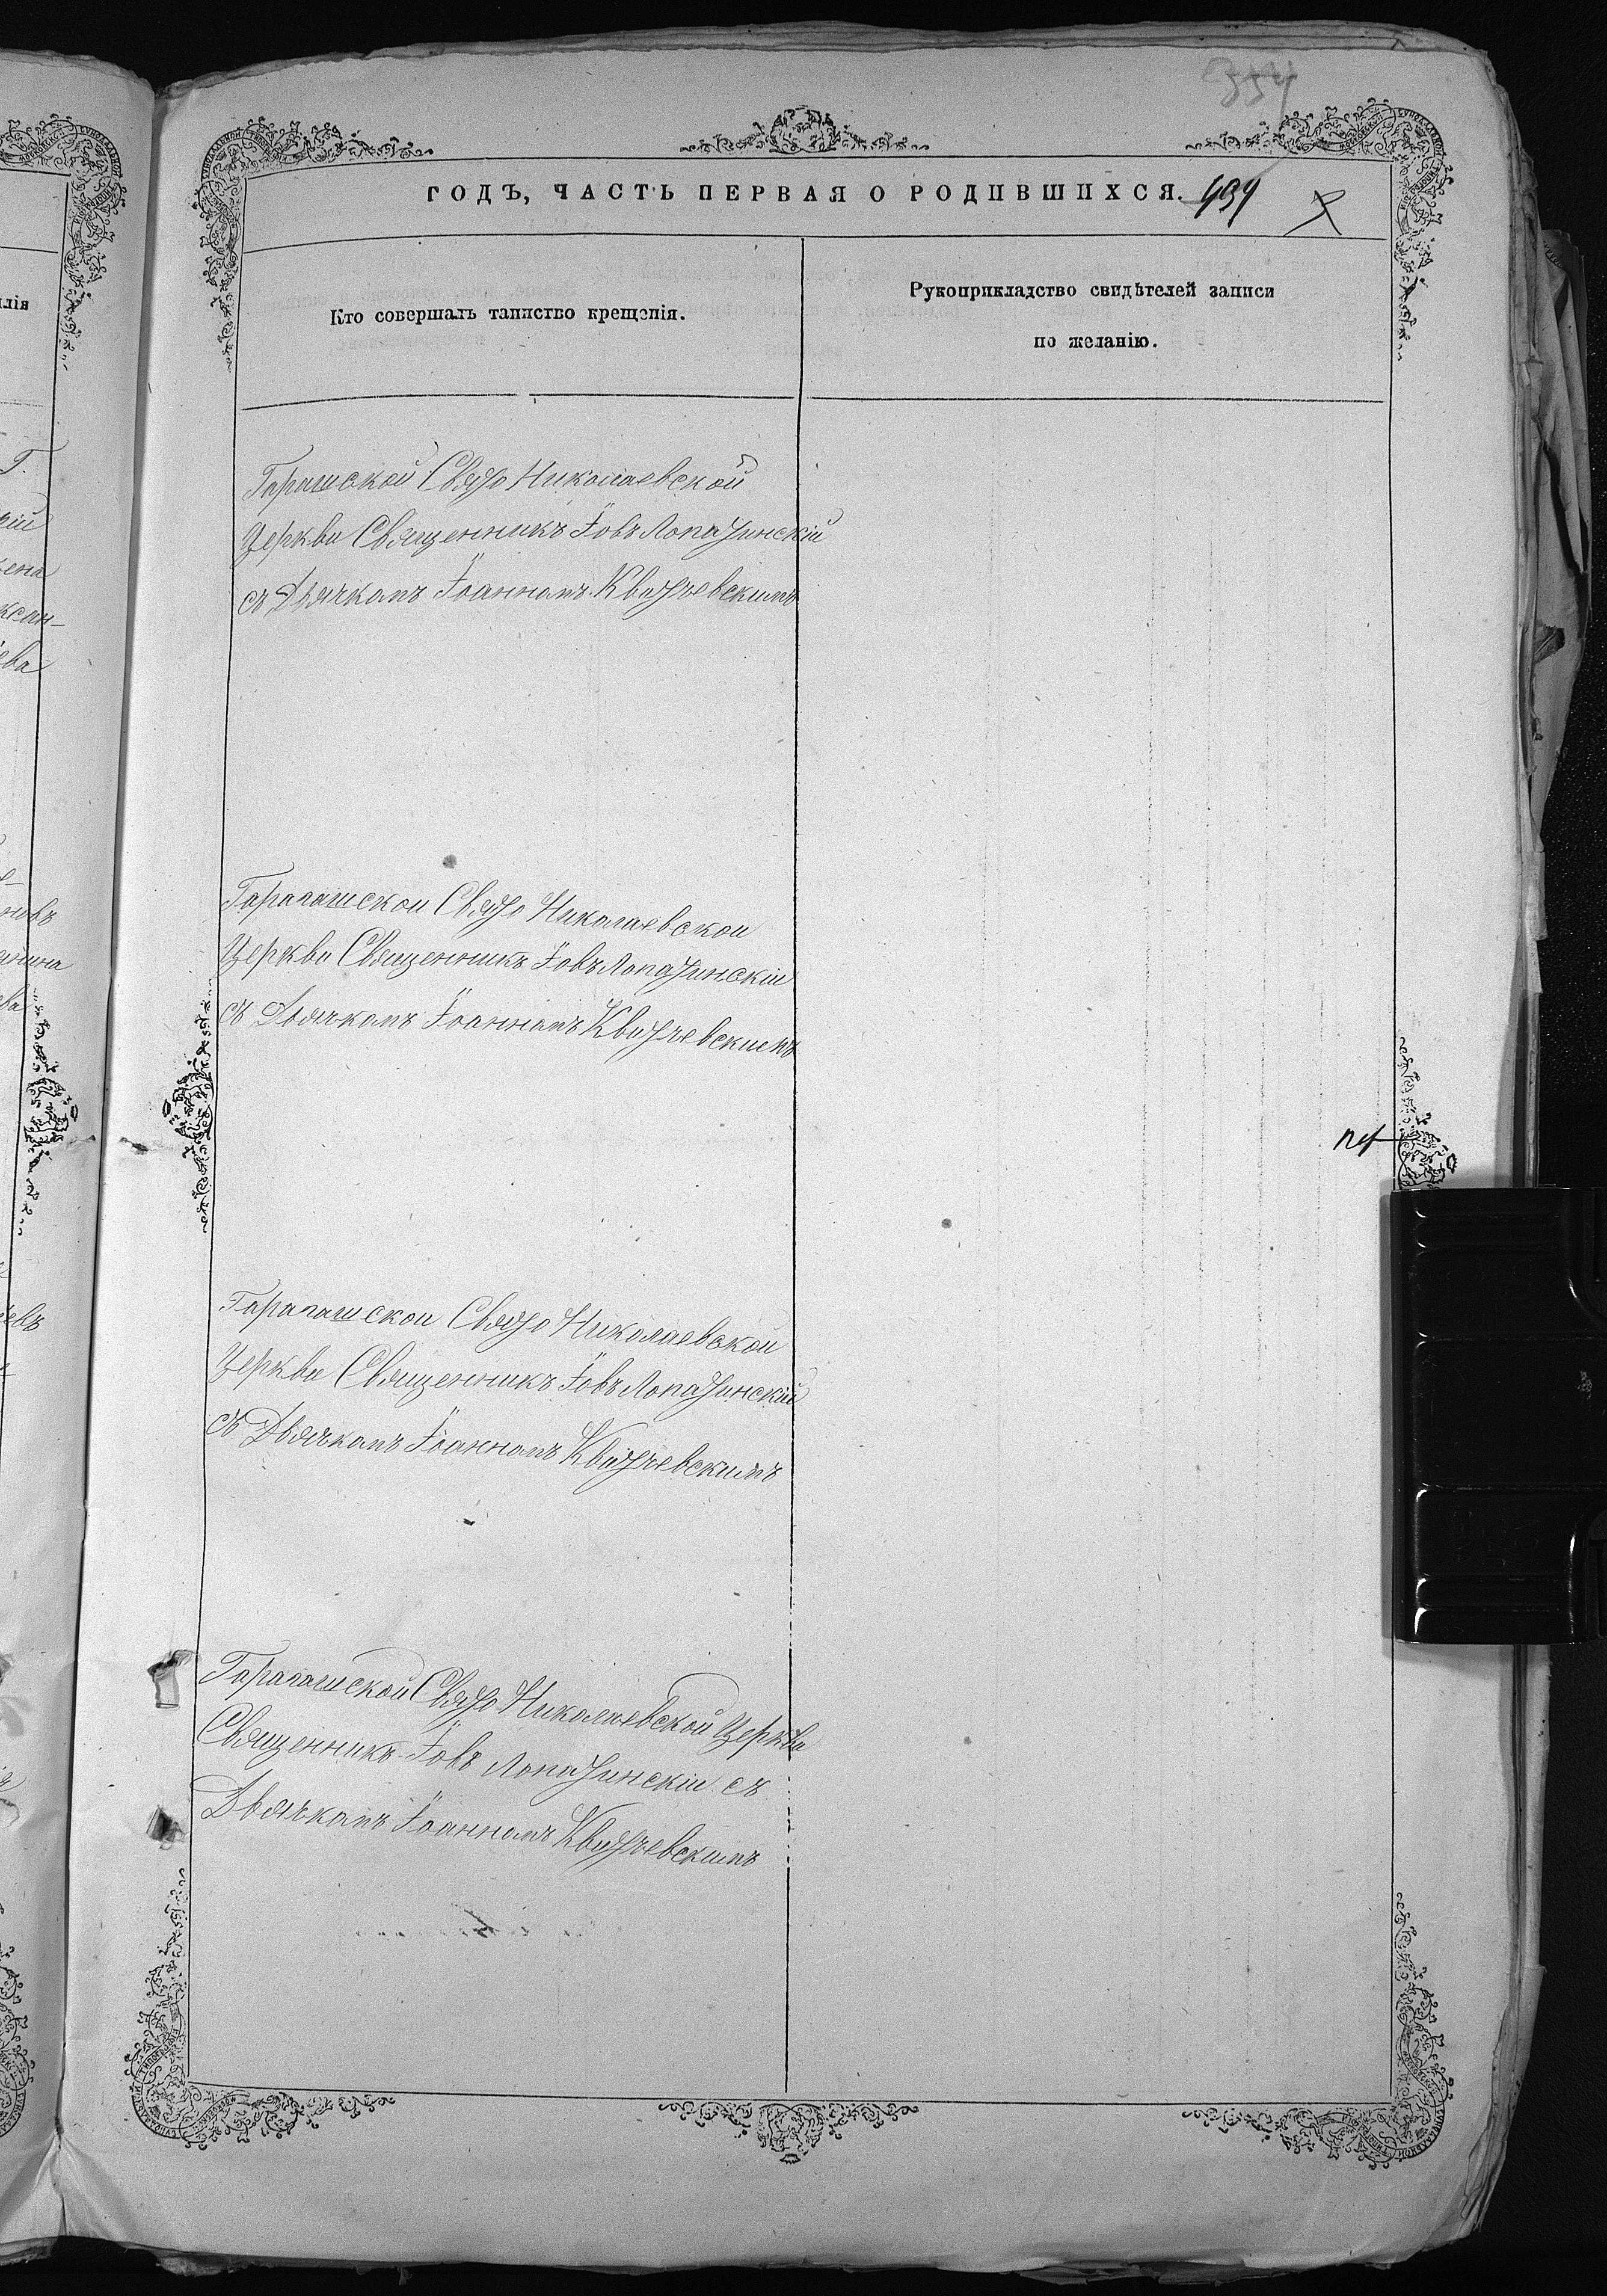 354
ГОДЪ, ЧАСТЬ ПЕРВАЯ О РОДИВШИХСЯ.
Кто совершалъ таинство крещенія.
Рукоприкладство свидѣтелей записи
по желанію.
Свято Николаевской
Церкви Священникъ Іовъ Лопатинскій
съ Дьячкомъ Іоанномъ Квитчевскимъ
Гарапашской Свято Николаевской
Церкви Священникъ Іовъ Лопатинскій
съ Дьячкомъ Іоанномъ Квитчевскимъ
Гарапашской Свято Николаевской
Церкви Священникъ Іовъ Лопатинскій
съ Дьячкомъ Іоанномъ Квитчевскимъ
Гарапашской Свято Николаевской Церкви
Священникъ Іовъ Лопатинскій съ
Дьячкомъ Іоанномъ Квитчевскимъ